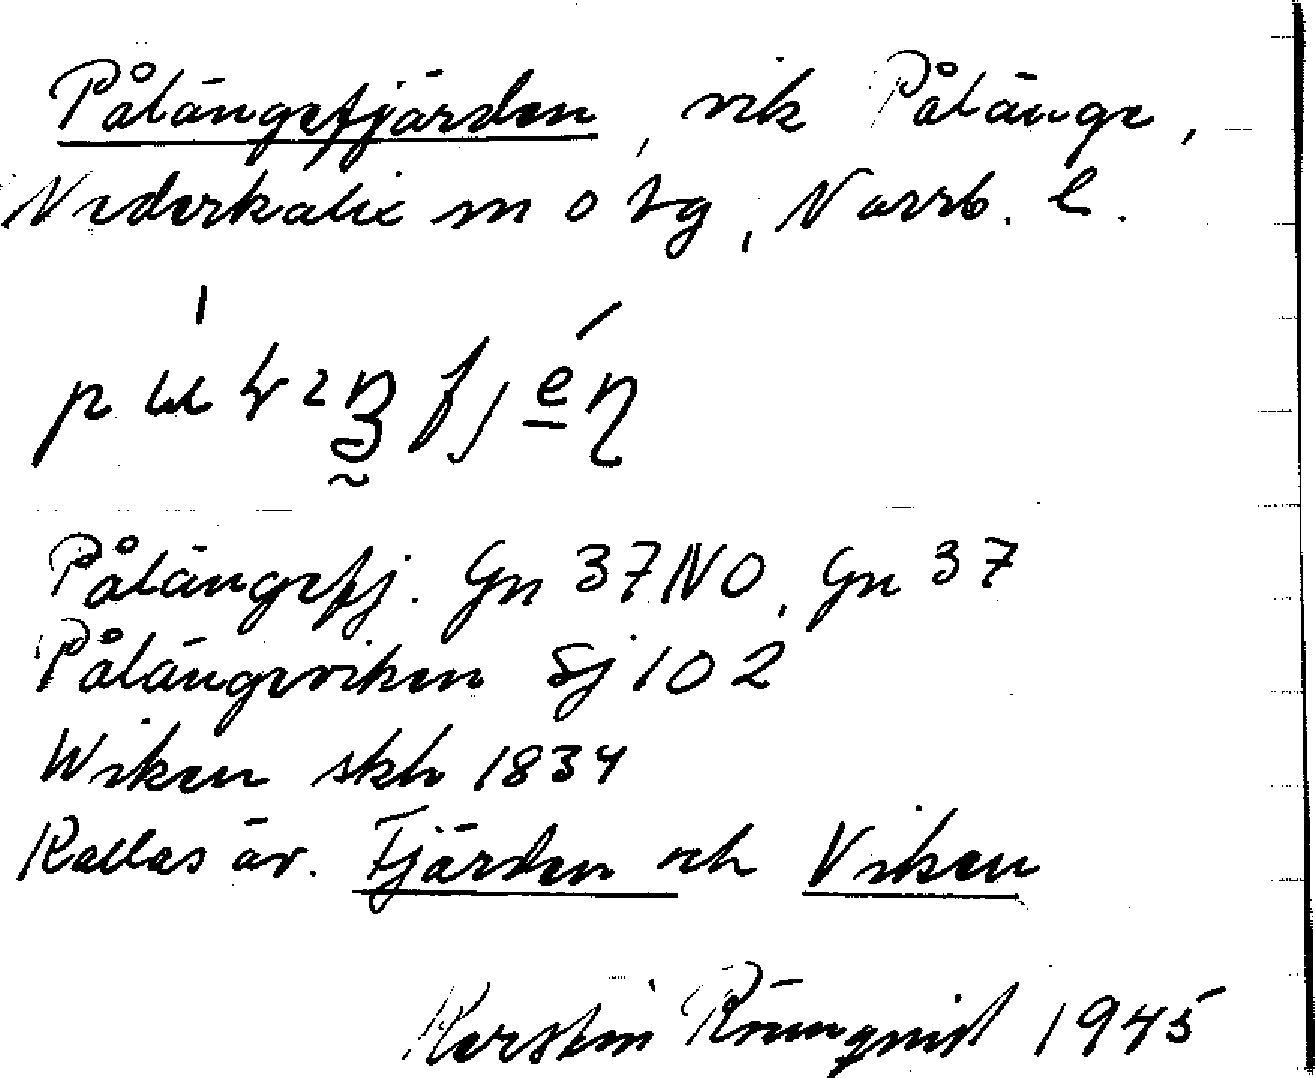 Pålängefjärden, vik Pålänge,
Nederkalix sn o tg, Norrb. l.
Pålängefj. Gn 37NO, Gn 37
Pålängeviken Sj 102
Wiken skh 1834
Kallas äv. Fjärden och Viken
Kerstin Rönnqvist 1945